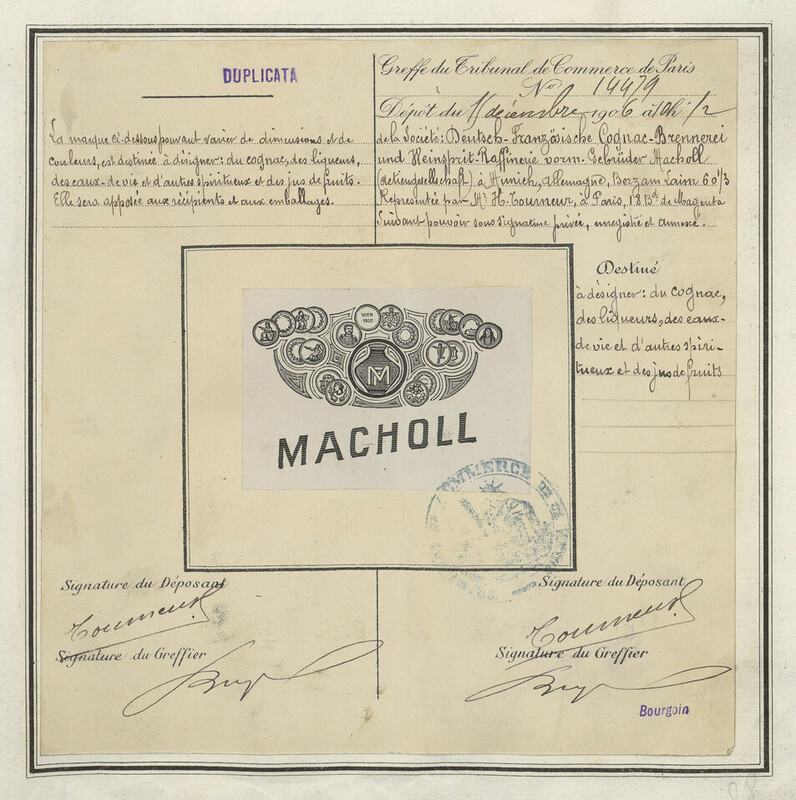 DUPLICATA
La marque ci-dessous pouvant varier de dimensions et de
couleurs, est destinée à désigner: du cognac, des liqueurs,
des eaux-de-vie et d'autres spiritueux et des jus de fruits.
Elle sera apposée aux récipients et aux emballages.
Greffe du Tribunal de Commerce de Paris
No 14479
Dépôt du 11 décembre 1906 à 10h 1/2
de la Société: Deutsch-Französische Cognac-Brennerei
und Weinsprit-Raffinerie vorm. Gebrüder Macholl
(Actiengesellschaft) à Munich, Allemagne, Berzam Laim 60 1/3
Representée par Mr H. Tourneur, à Paris, 18 Bd de Magenta
Suivant pouvoir sous signature privée, enregistré et annexé.
Destiné
à désigner: du cognac,
des liqueurs, des eaux-
de vie et d'autres spiri-
tueux et des jus de fruits
WIEN
MACHOLL
COMMERCE DE
Signature du Déposant
Tourneur
Signature du Greffier
Signature du Déposant
Tourneur
Signature du Greffier
Bourgoin